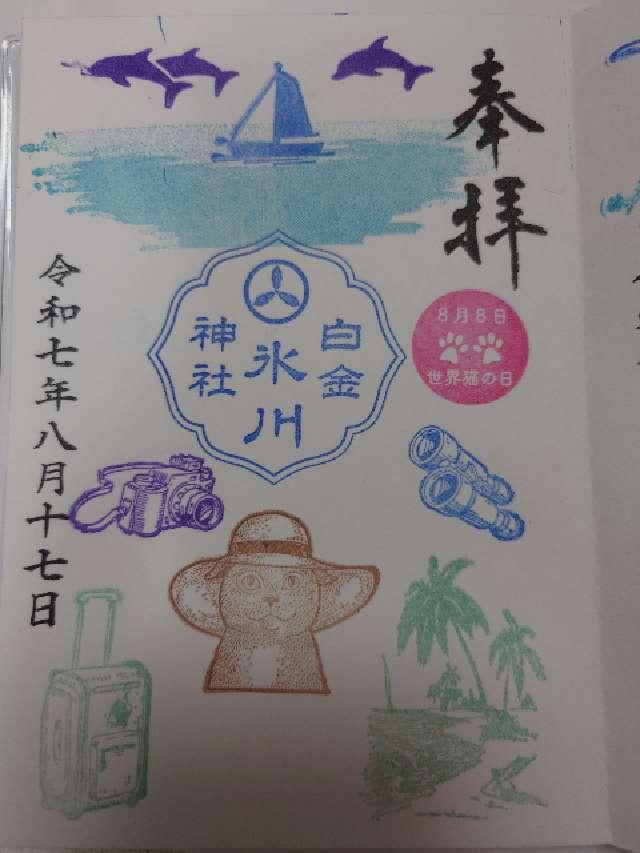 奉拝
8月8日
世界猫の日
白金
氷川
神社
令和七年八月十七日